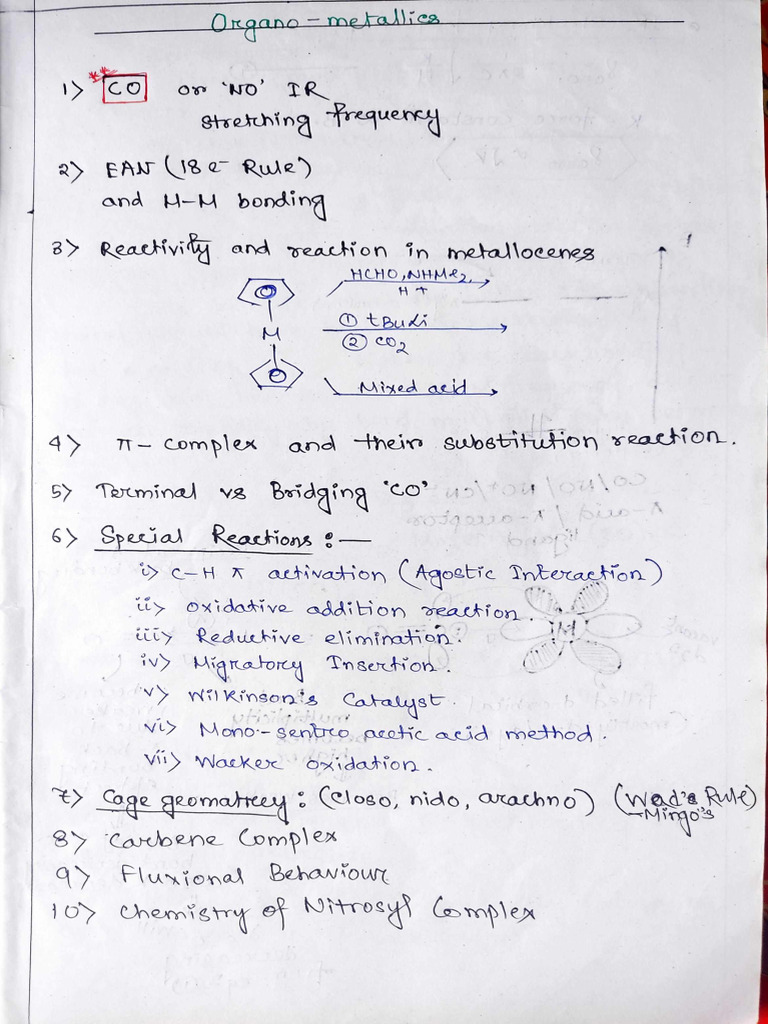 Organo-metallics
1> **CO or 'NO' IR
stretching frequency
2> EAN (18 e- Rule)
and M-M bonding
3> Reactivity and reaction in metallocenes
HCHO, NHMe2,
H+
① tBuLi
M
② CO2
Mixed acid
4> π- complex and their substitution reaction.
5> Terminal vs Bridging 'CO'
6> Special Reactions :—
i> C-H π activation (Agostic Interaction)
ii> Oxidative addition reaction.
iii> Reductive elimination.
iv> Migratory Insertion.
v> Wilkinson's Catalyst.
vi> Mono-sentro acetic acid method.
vii> Wacker oxidation.
7> Cage geomatrey : (closo, nido, arachno) (Wad's Rule)
-Mingo's
8> Carbene Complex
9> Fluxional Behaviour
10> Chemistry of Nitrosyl Complex